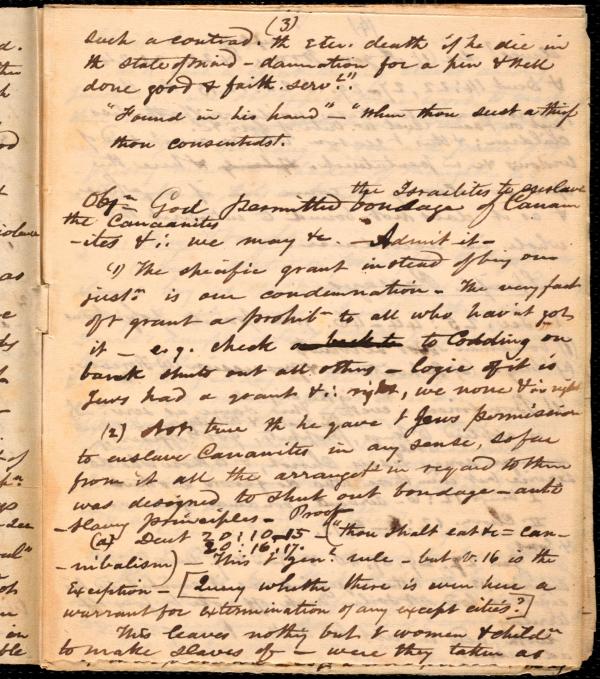 (3)
such a contract. th Eter. death if he die in
the state of mind - damnation for a pin & Well
done good & faith. servt."
"Found in his hand" - "When thou seest a thief
thou consentedst.
the Israelites to enslave
Objn God permitted bondage of Canaan
the Canaanites
-ites & ∴ we may &c. - Admit it -
(1) The specific grant instead of being our
justn is our condemnation - The very fact
of grant a prohibn to all who hav'nt got
it - e.g. check to Codding on
bank shuts out all others - logic of it is
Jews had a grant & ∴ right, we none & ∴ no right
(2) Not true th he gave Jews permission
to enslave Canaanites in any sense, so far
from it all the arrangets in regard to them
was designed to shut out bondage - anti
-slavery principles - Proof
(a) Deut 20:10-15 - ("thou shalt eat &c = can-
20:16,17.
-nibalism) - This genl rule - but v. 16 is the
Exception - [Query whether there is even here a
warrant for extermination of any except cities?]
This leaves nothing but women & childn
to make slaves of - were they taken as